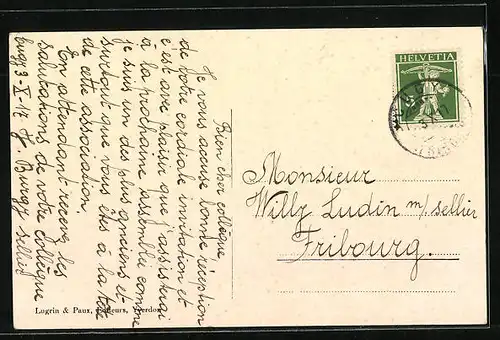 Bien cher collègue
Je vous accuse bonne réception
de votre cordiale invitation et
c'est avec plaisir que j'assisterai
à la prochaine assemblée comme
je suis un des plus anciens et
surtout que vous êtes à la tête
de cette association.
En attendant recevez les
salutations de votre collègue
3-X-17 J. Burgy sellier
HELVETIA
Monsieur
Willy Ludin m/sellier
Fribourg.
Lugrin & Paux, éditeurs, Yverdon